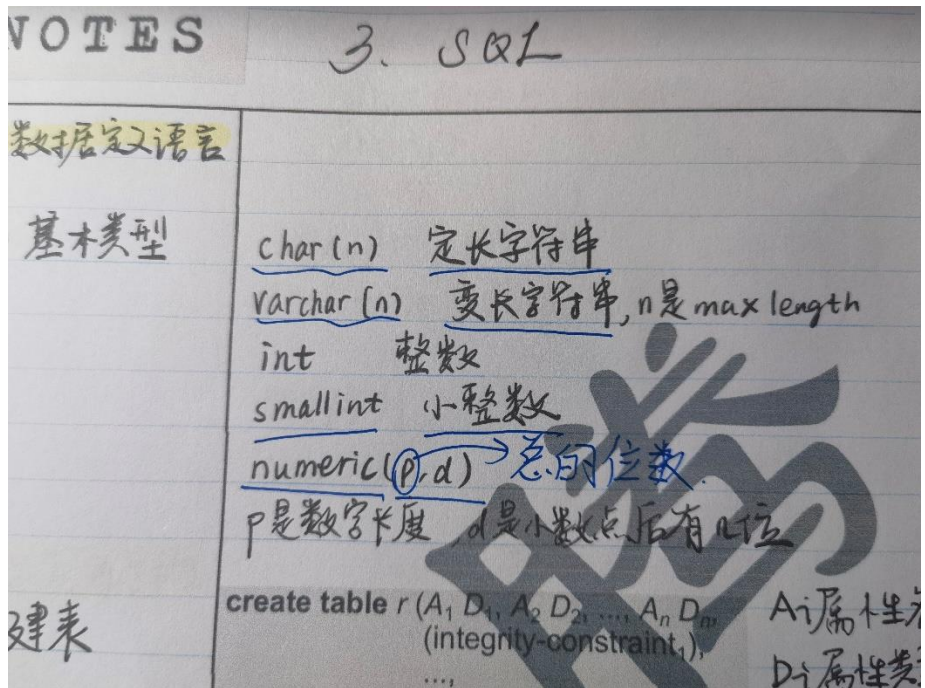 NOTES
3. SQL
数据定义语言
基本类型
char(n) 定长字符串
varchar(n) 变长字符串,n是max length
int 整数
smallint 小整数
numeric(p,d) 总的位数.
p是数字长度,d是小数点后有几位
建表
create table r (A₁ D₁, A₂ D₂, ..., Aₙ Dₙ, Ai属性
(integrity-constraint₁), Di属性类
...,